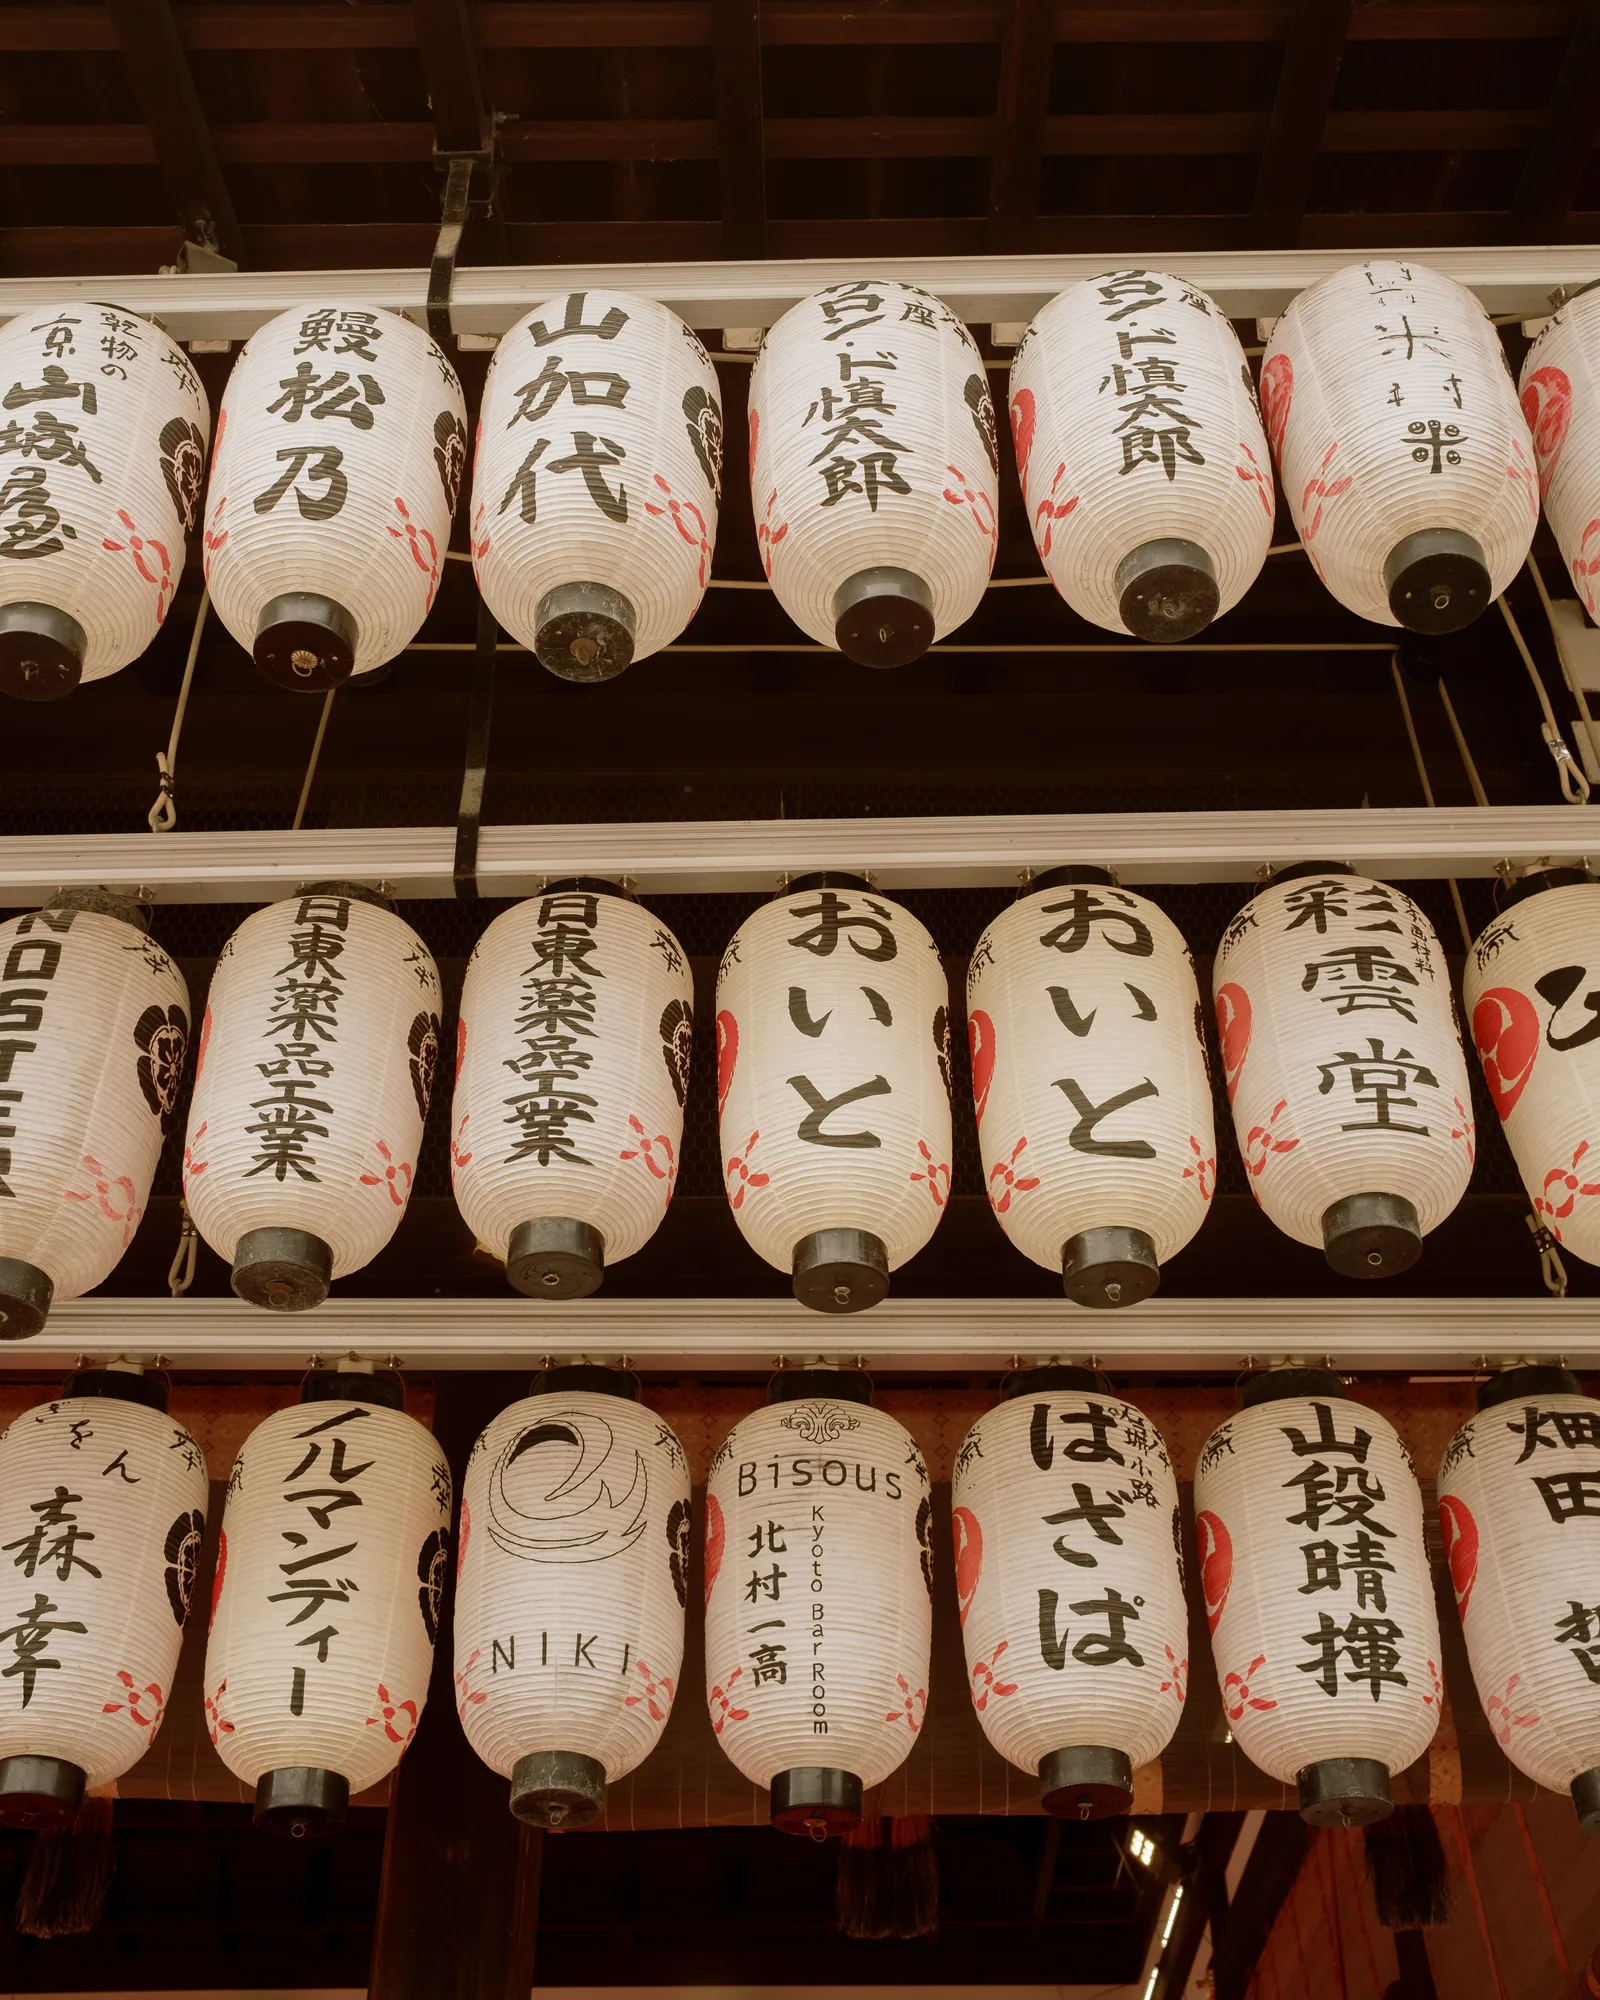 乾物の
京
山城屋
鰻
松乃
山加代
座
ロンド慎太郎
座
ロンド慎太郎
米村
NOSTER
日東薬品工業
日東薬品工業
おいと
おいと
彩雲堂
ひ
ぎをん
森幸
ノルマンディー
NIKI
Bisous
Kyoto Bar Room
北村一高
ぱざぱ
山段晴揮
畑田